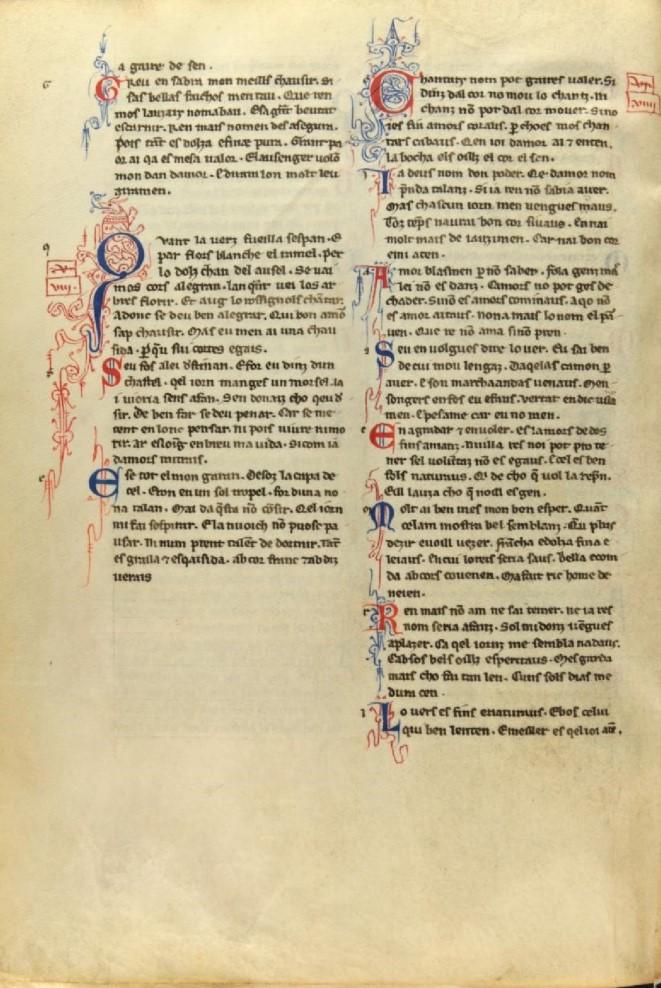 a gaire de sen.
Greu en sabra mon meills chausir. Si
sas bellas faichos men tau. Que ren
mos lauzars nomabau. Esa grãt beutat
escarnir. Ren mais nomen des asegura.
Pois tãt es dolza efinæ pura. Grant pa
or ai qa es mesa ualor. Elausenger uolõ
mon dan damor. e durani lon molt leu
aturamen.
Qvant la uerz fueilla sespan. E
par flors blanche el ramel. Per
lo dolz chan del ausel. Se uai
mos cors alegran. Lan qãt uei los ar
bres florir. Et aug lo rossignols chãtar.
Adonc se deu ben alegrar. Qui bon amõ
sap chausir. Mas eu men ai una chau
sida. Per qu siu cortes egais.
Seu fos alei destinan. Efor eu dinz dun
chastel. qel iorn manges un morsel. la
i uiuria sens afan. Sen donatz cho qeu de
sir. De ben far se deu penar. Car se me
tent en lonc pensar. ni pois uiure nimo
rir. ar eslong en breu ma uida. Si com ia
damors murais.
E se tot el mon garan. Desoz la capa de
cel. Eron en un sol tropel. for duna no
na talan. Mai da qsta nõ cõsir. Qel iorn
mi fai sospirar. E la nuoich nõ puosc pa
usar. Ni num prent talẽt de dormir. Tãt
es graila et esqauida. ab cor franc et ab diz
uerais
Chantars nom pot gaires ualer. Si
dinz dal cor no mou lo chantz. Ni
chanz nõ pot dal cor mouer. Si no
ies fin amors coraus. per choes mos chan
tars cabaus. Qen ioi damor ai et enten.
La bocha els oillz el cor el sen.
Ia deus nom don poder. Qe damor nom
prenda talanz. Si ia ren nõ sabia auer.
Mas chascun iorn men uengues maus.
Toz tẽps naurai bon cor siuaus. En nai
molt mais de iauzimen. Car nai bon cor
emi aten.
Amor blasmen per nõ saber. fola genz ma
lei nõ es danz. Camors no pot ges de
chader. Sinõ es amors cominaus. aqo nõ
es amor aitaus. Non a mais lo nom el par
uen. Que re nõ ama sinõ pren.
Seu en uolgues dire lo uer. Eu sai ben
de cui mou lengaz. Daqelas camon per
auer. E son marchaandas uenaus. Men
songers en fos eu efaus. uertat en dic uila
men. Epesame car eu no men.
En agradar et en uoler. es lamors de dos
fins amanz. Nuilla res noi pot pro te
ner sel voluntaz nõ es egaus. Ecel es ben
fols naturaus. Qi de cho qe uol la repn.
Eill lauza cho qe noill es gen.
Molt ai ben mes mon bon esper. Quãt
celam mostra bel semblanz. Eu plus
dezir euoill uezer. frãcha edolza fina e
leiaus. En cui loreis seria saus. Bella ecoin
da ab cors couenen. Ma fait ric home de
neien.
Ren mais nõ am ne sai temer. ne ia res
nom seria afanz. Sol midonz uẽgues
a plazer. Ca qel iornz me sembla nadaus.
Cab sos bels oillz esperitaus. Mesgarda
mais cho fai tan len. Cuns sols dias me
dura cen.
Lo uers es fins enaturaus. Ebos celui
qui ben lenten. E meiller es qel ioi atẽ.